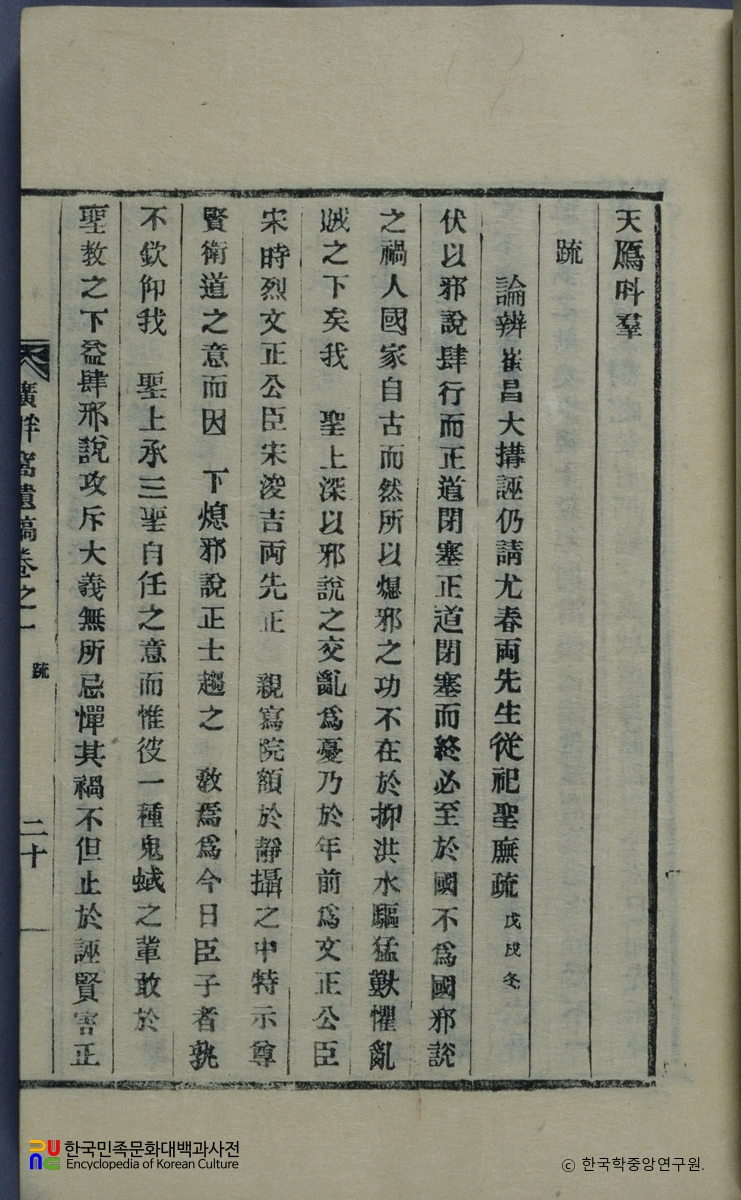 天鴈呌羣
疏
論辨崔昌大搆誣仍請尤春両先生從祀聖廡疏 戊戌冬
伏以邪說肆行而正道閉塞正道閉塞而終必至於國不爲國邪說
之禍人國家自古而然所以熄邪之功不在於抑洪水驅猛獸懼亂
賊之下矣我 聖上深以邪說之交亂爲憂乃於年前爲文正公臣
宋時烈文正公臣宋浚吉両先正 親寫院額於靜攝之中特示尊
賢衛道之意而因 下熄邪說正士趨之 敎焉爲今日臣子者孰
不欽仰我 聖上承三聖自任之意而惟彼一種鬼蜮之輩敢於
聖教之下益肆邪說攻斥大義無所忌憚其禍不但止於誣賢害正
窩遺稿卷之一 疏 二十
한국민족문화대백과사전
Encyclopedia of Korean Culture
© 한국학중앙연구원.